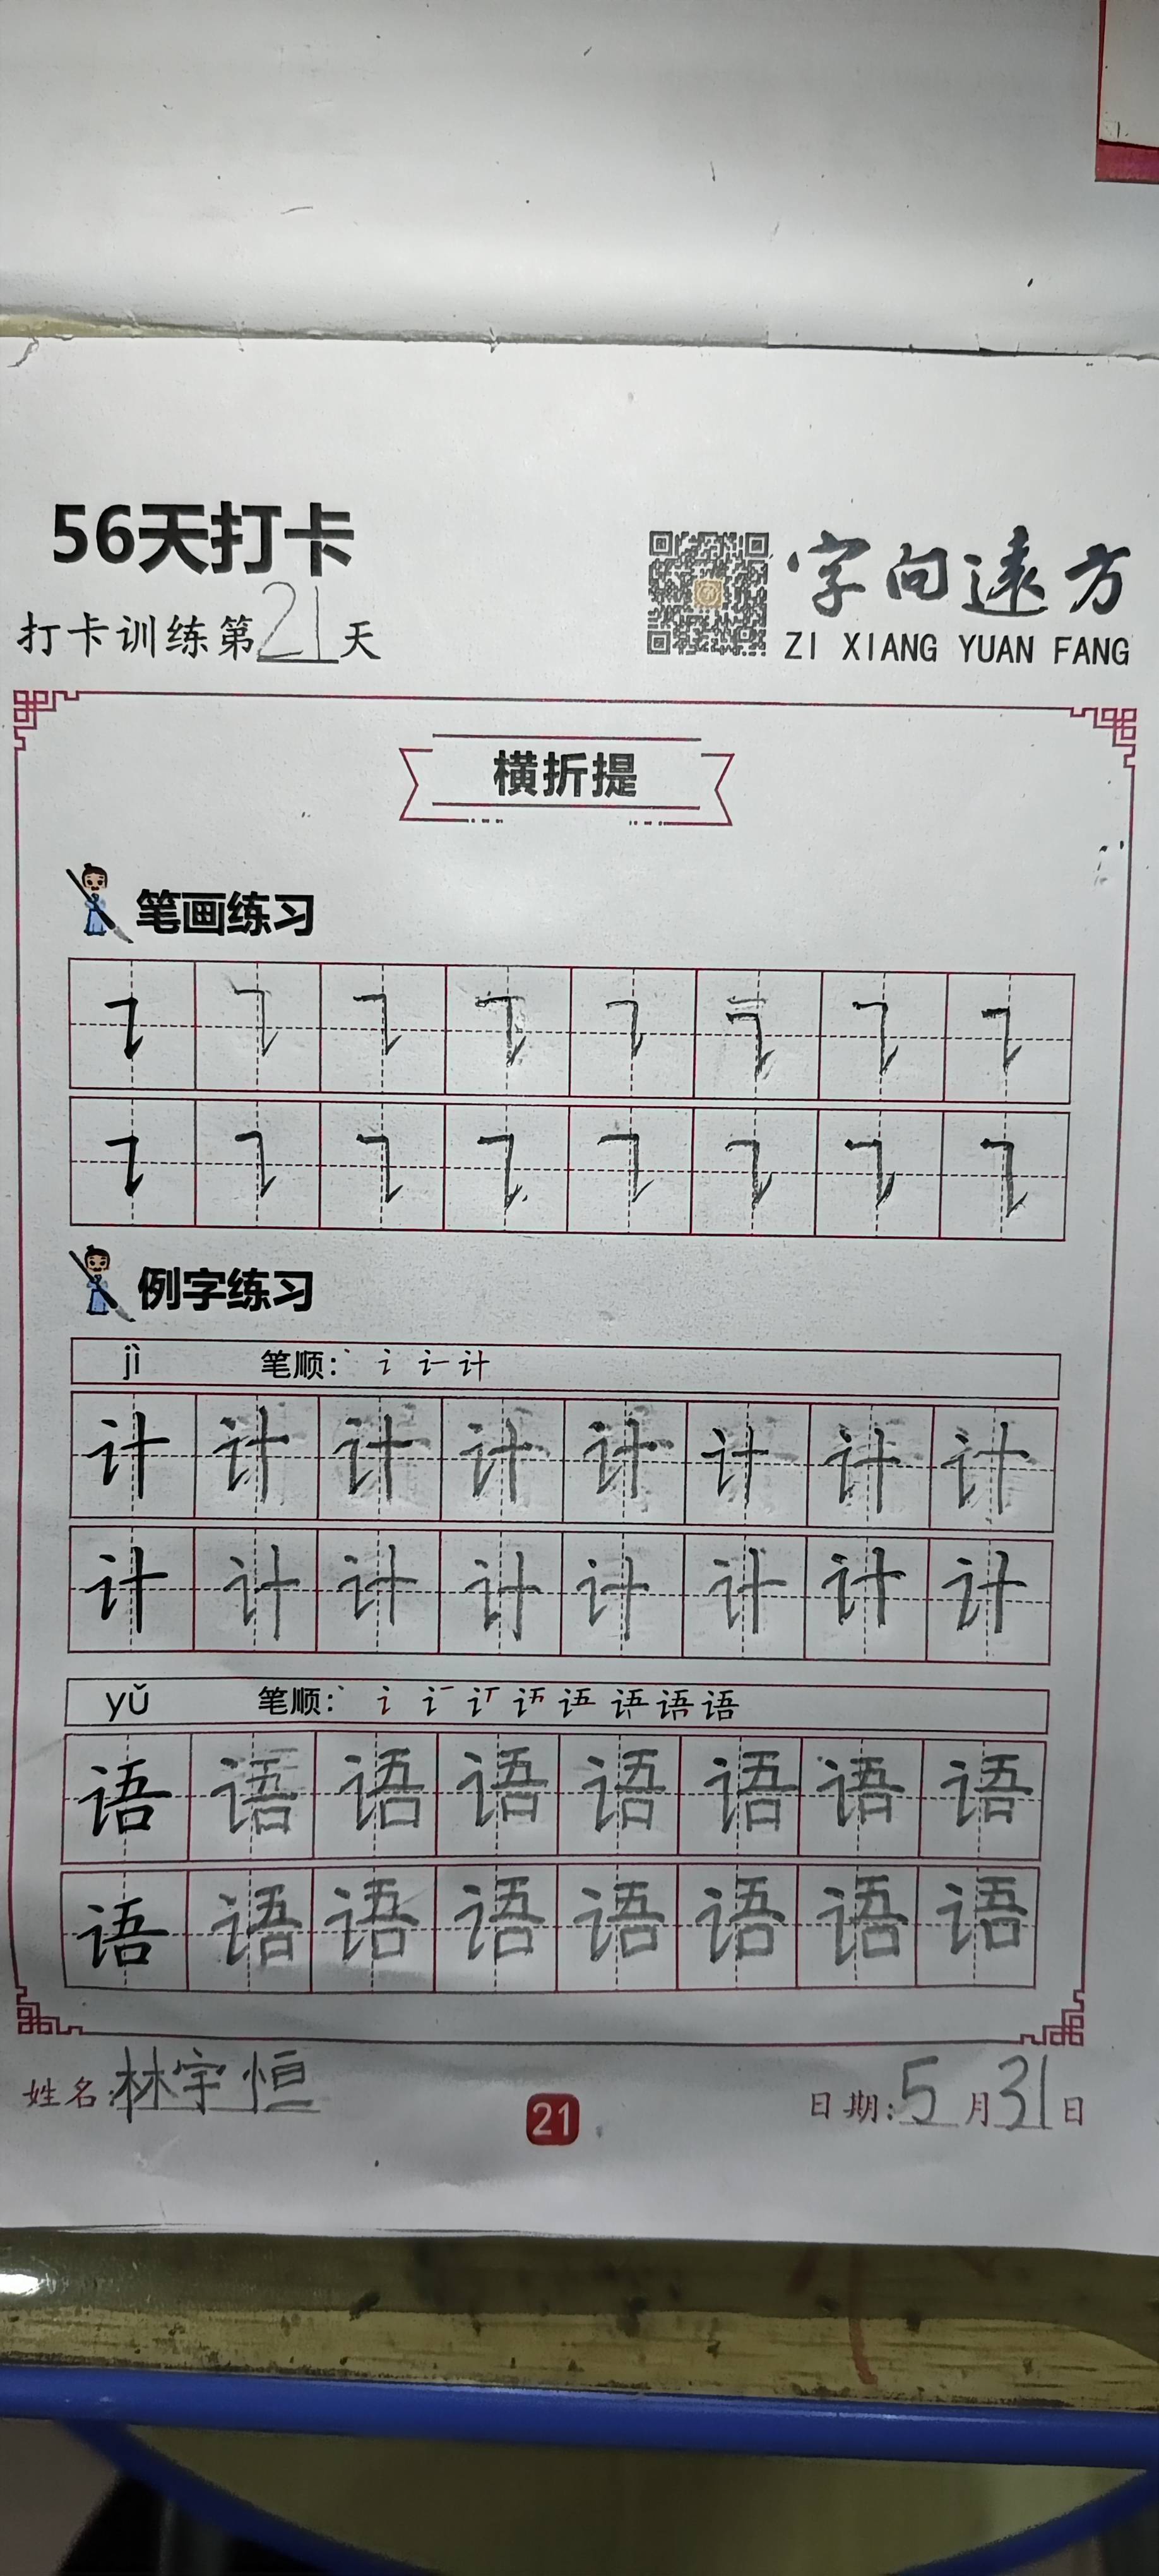 56天打卡
打卡训练第21天
字向遠方
ZI XIANG YUAN FANG
横折提
笔画练习
㇊ ㇊ ㇊ ㇊ ㇊ ㇊ ㇊ ㇊
㇊ ㇊ ㇊ ㇊ ㇊ ㇊ ㇊ ㇊
例字练习
jì 笔顺: 丶 讠 计
计 计 计 计 计 计 计 计
计 计 计 计 计 计 计 计
yǔ 笔顺: 丶 讠 语
语 语 语 语 语 语 语 语
语 语 语 语 语 语 语 语
姓名:林宇恒
21
日期:5月31日